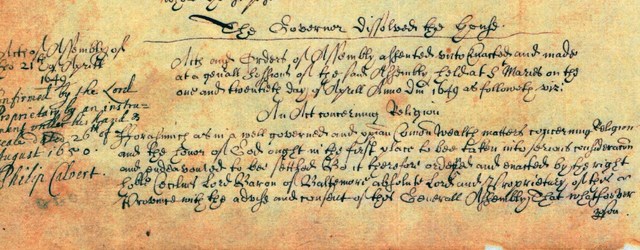 The Governor dissolved the House.
Acts of Assembly of
the 21th of Aprill
1649
Confirmed by the Lord
Proprietary by an instru-
ment under his hand &
seale 26th of
August 1650.
Philip Calvert.
Acts and Orders of Assembly assented vnto Enacted and made
at a genall Sessions of the said Assembly held at St Maries on the
one and twentieth day of Aprill Anno Dm 1649 as followeth viz:
An Act concerning Religion
fforasmuch as in a well governed and xpian Comon Wealth matters concerning Religion
and the honor of God ought in the first place to bee taken into serious consideracon
and endeavoured to bee settled. Be it therefore ordered and enacted by the right
hoble Cecilius Lord Baron of Baltemore absolute Lord and Proprietary of this
Province with the advise and consent of this Generall Assembly. That whatsoever